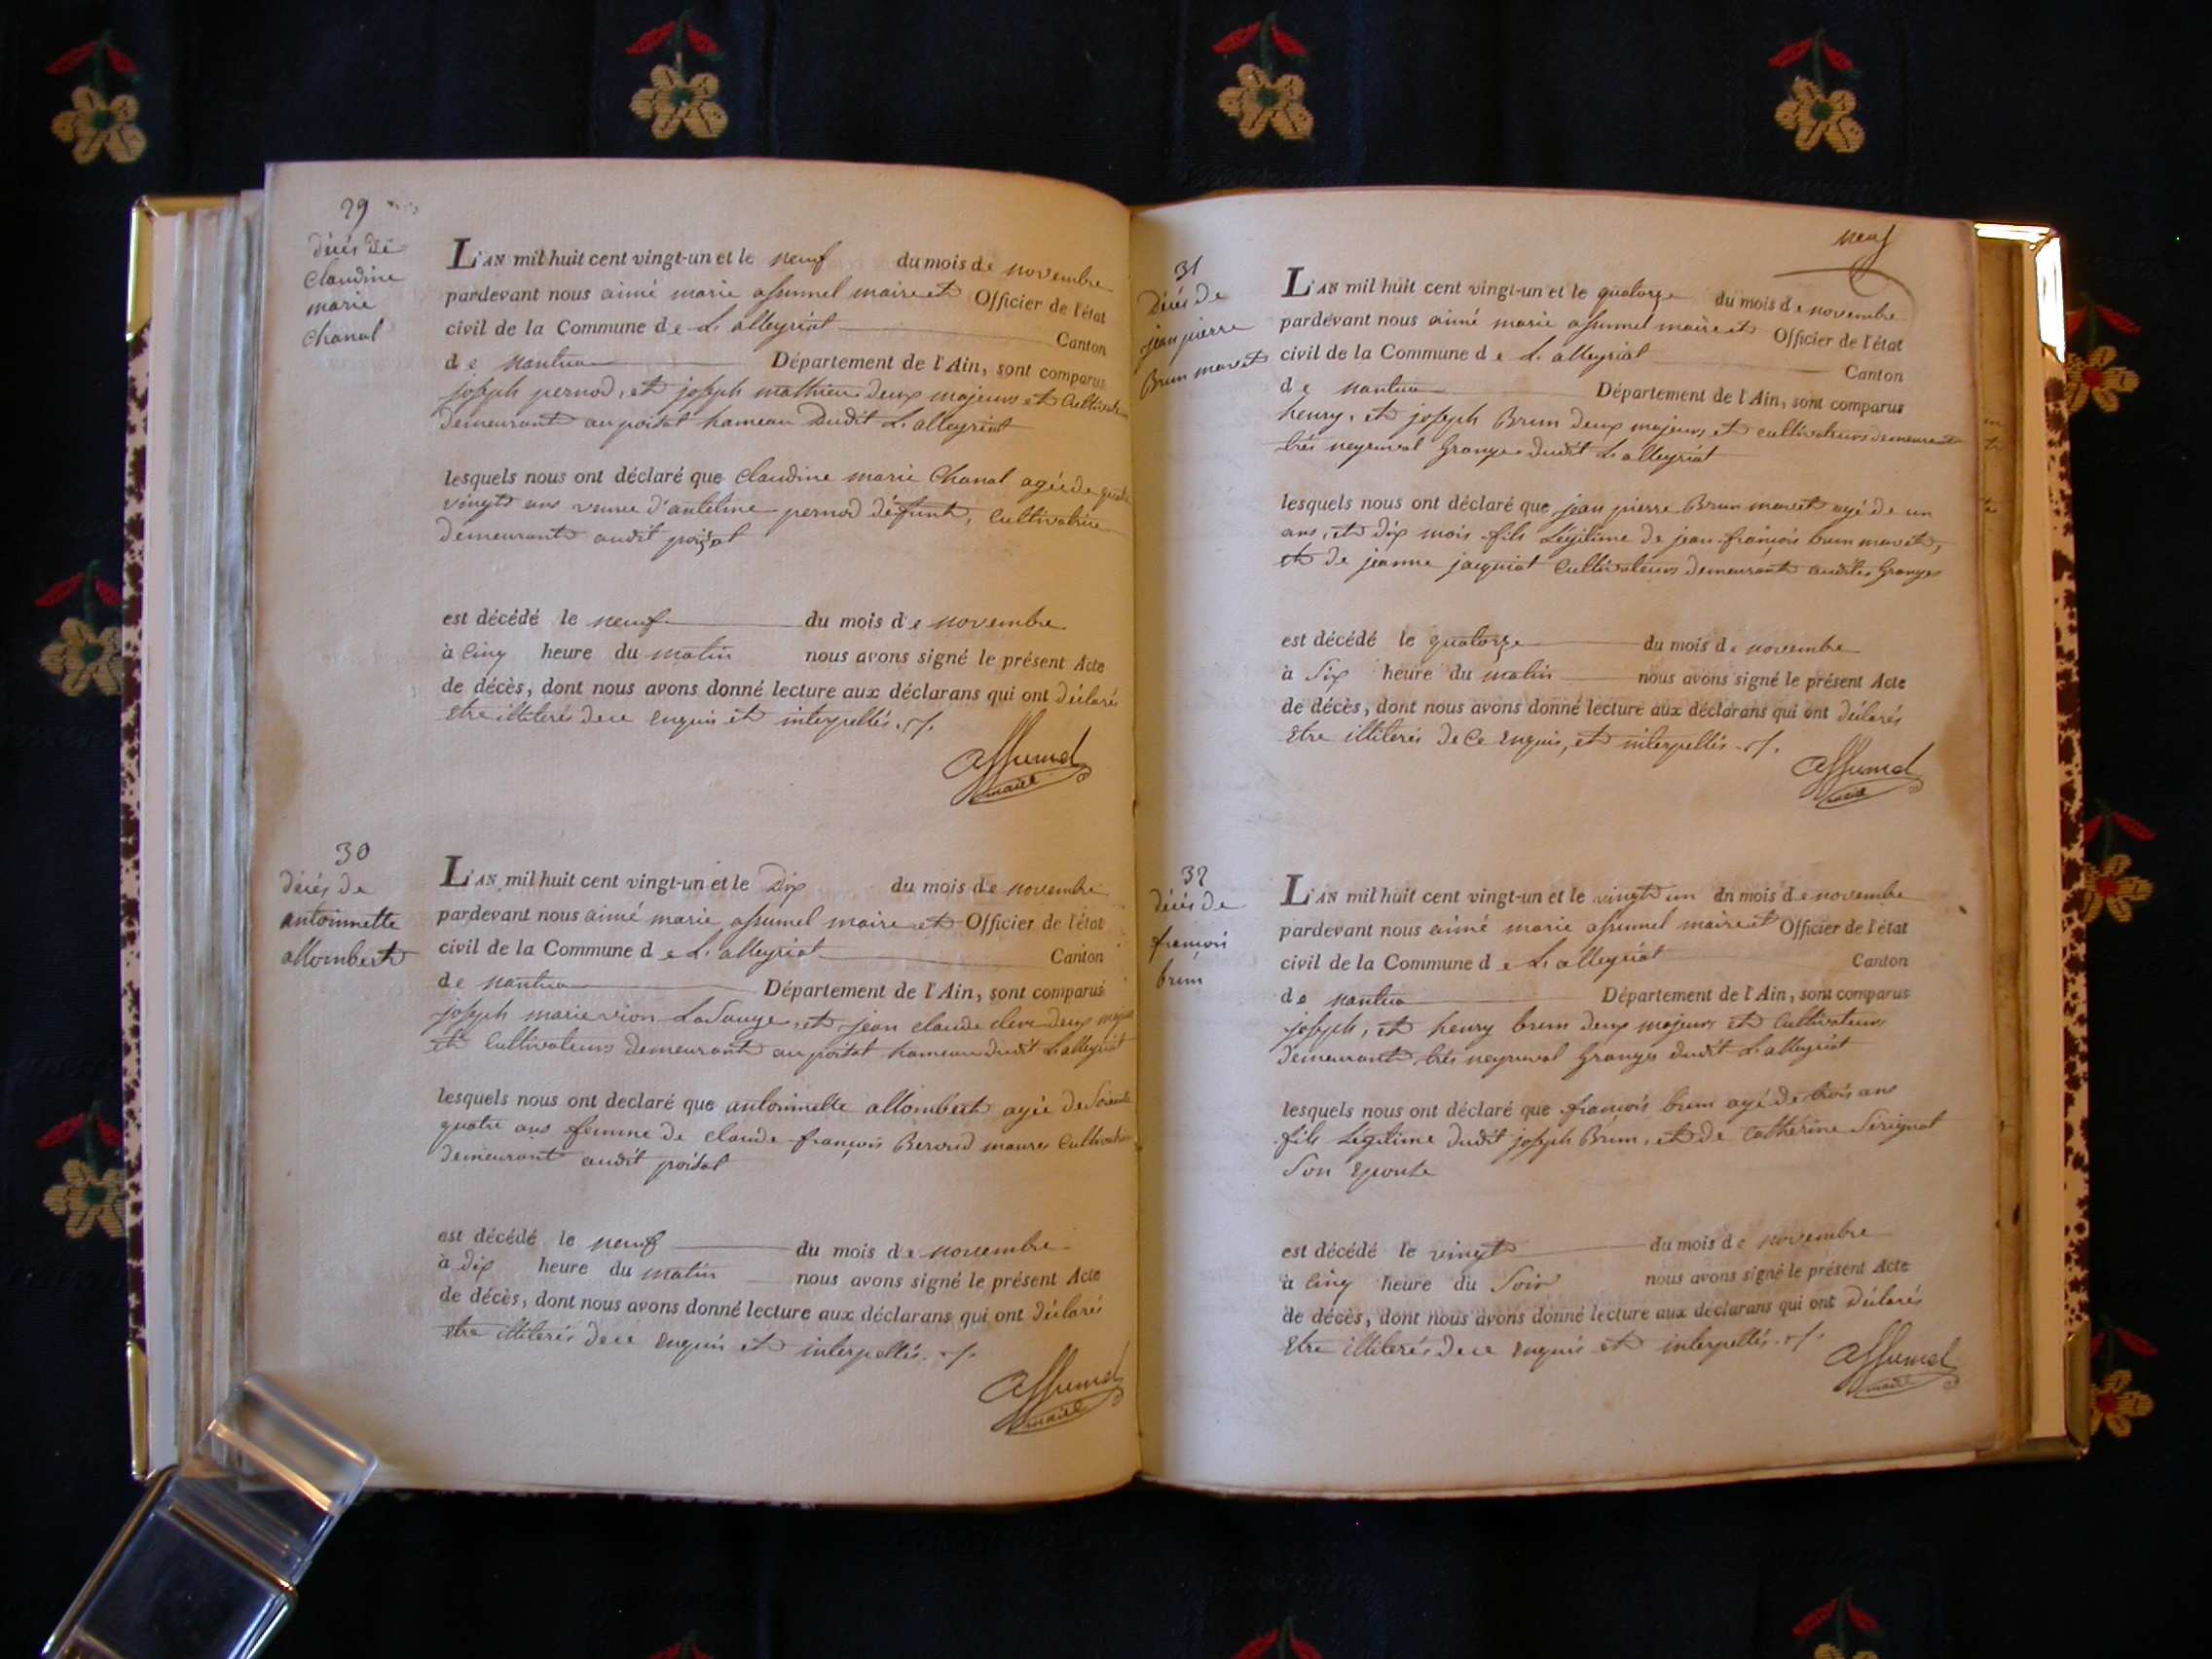 29
décés de
Claudine
marie
Chanal
L'AN mil huit cent vingt-un et le neuf du mois de novembre
pardevant nous aimé marie assumel maire et Officier de l'état
civil de la Commune de L'alleyriat Canton
de nantua Département de l'Ain, sont comparus
joseph pernod, et joseph mathieu deux majeurs et Cultivateurs
demeurant au poisat hameau dudit L'alleyriat
lesquels nous ont déclaré que Claudine marie Chanal agée de quatre
vingts ans veuve d'antelme pernod défunt, Cultivatrice
demeurant audit poizat
est décédé le neuf du mois de novembre
à Cinq heure du matin nous avons signé le présent Acte
de décès, dont nous avons donné lecture aux déclarans qui ont déclarés
Etre illiterés de ce enquis et interpellés ./.
Assumel
maire
30
décés de
antoinnette
allombert
L'AN mil huit cent vingt-un et le Dix du mois de novembre
pardevant nous aimé marie assumel maire et Officier de l'état
civil de la Commune de L'alleyriat Canton
de nantua Département de l'Ain, sont comparus
joseph marie vion Lasauge, et jean claude deux majeurs
et Cultivateurs demeurant au poisat hameau dudit L'alleyriat
lesquels nous ont declaré que antoinnette allombert agée de Soixante
quatre ans femme de claude françois Beroud maures Cultivateur
demeurant audit poisat
est décédé le neuf du mois de novembre
à dix heure du matin nous avons signé le présent Acte
de décès, dont nous avons donné lecture aux déclarans qui ont déclarés
Etre illiterés de ce enquis et interpellés ./.
Assumel
maire
neuf
31
Décés de
jean pierre
Brun mavet
L'AN mil huit cent vingt-un et le quatorze du mois de novembre
pardevant nous aimé marie assumel maire et Officier de l'état
civil de la Commune de L'alleyriat Canton
de nantua Département de l'Ain, sont comparus
henry, et joseph Brun deux majeurs et cultivateurs demeurant
très neyrieval Granges dudit L'alleyriat
lesquels nous ont déclaré que jean pierre Brun mavet agé de un
ans, et dix mois fils Légitime de jean françois brun mavet,
et de jeanne jacquiot Cultivateurs demeurant audites Granges
est décédé le quatorze du mois de novembre
à Six heure du matin nous avons signé le présent Acte
de décès, dont nous avons donné lecture aux déclarans qui ont déclarés
Etre illiterés de Ce enquis, et interpellés ./.
Assumel
maire
32
décés de
françois
brun
L'AN mil huit cent vingt-un et le vingt un du mois de novembre
pardevant nous aimé marie assumel maire et Officier de l'état
civil de la Commune de L'alleyriat Canton
de nantua Département de l'Ain, sont comparus
joseph, et henry brun deux majeurs et Cultivateurs
demeurant très neyrieval Granges dudit L'alleyriat
lesquels nous ont déclaré que françois brun agé de trois ans
fils Légitime dudit joseph Brun, et de Catherine Serignat
Son Epouse
est décédé le vingt du mois de novembre
à Cinq heure du Soir nous avons signé le présent Acte
de décès, dont nous avons donné lecture aux déclarans qui ont déclarés
Etre illiterés de ce enquis et interpellés ./.
Assumel
maire